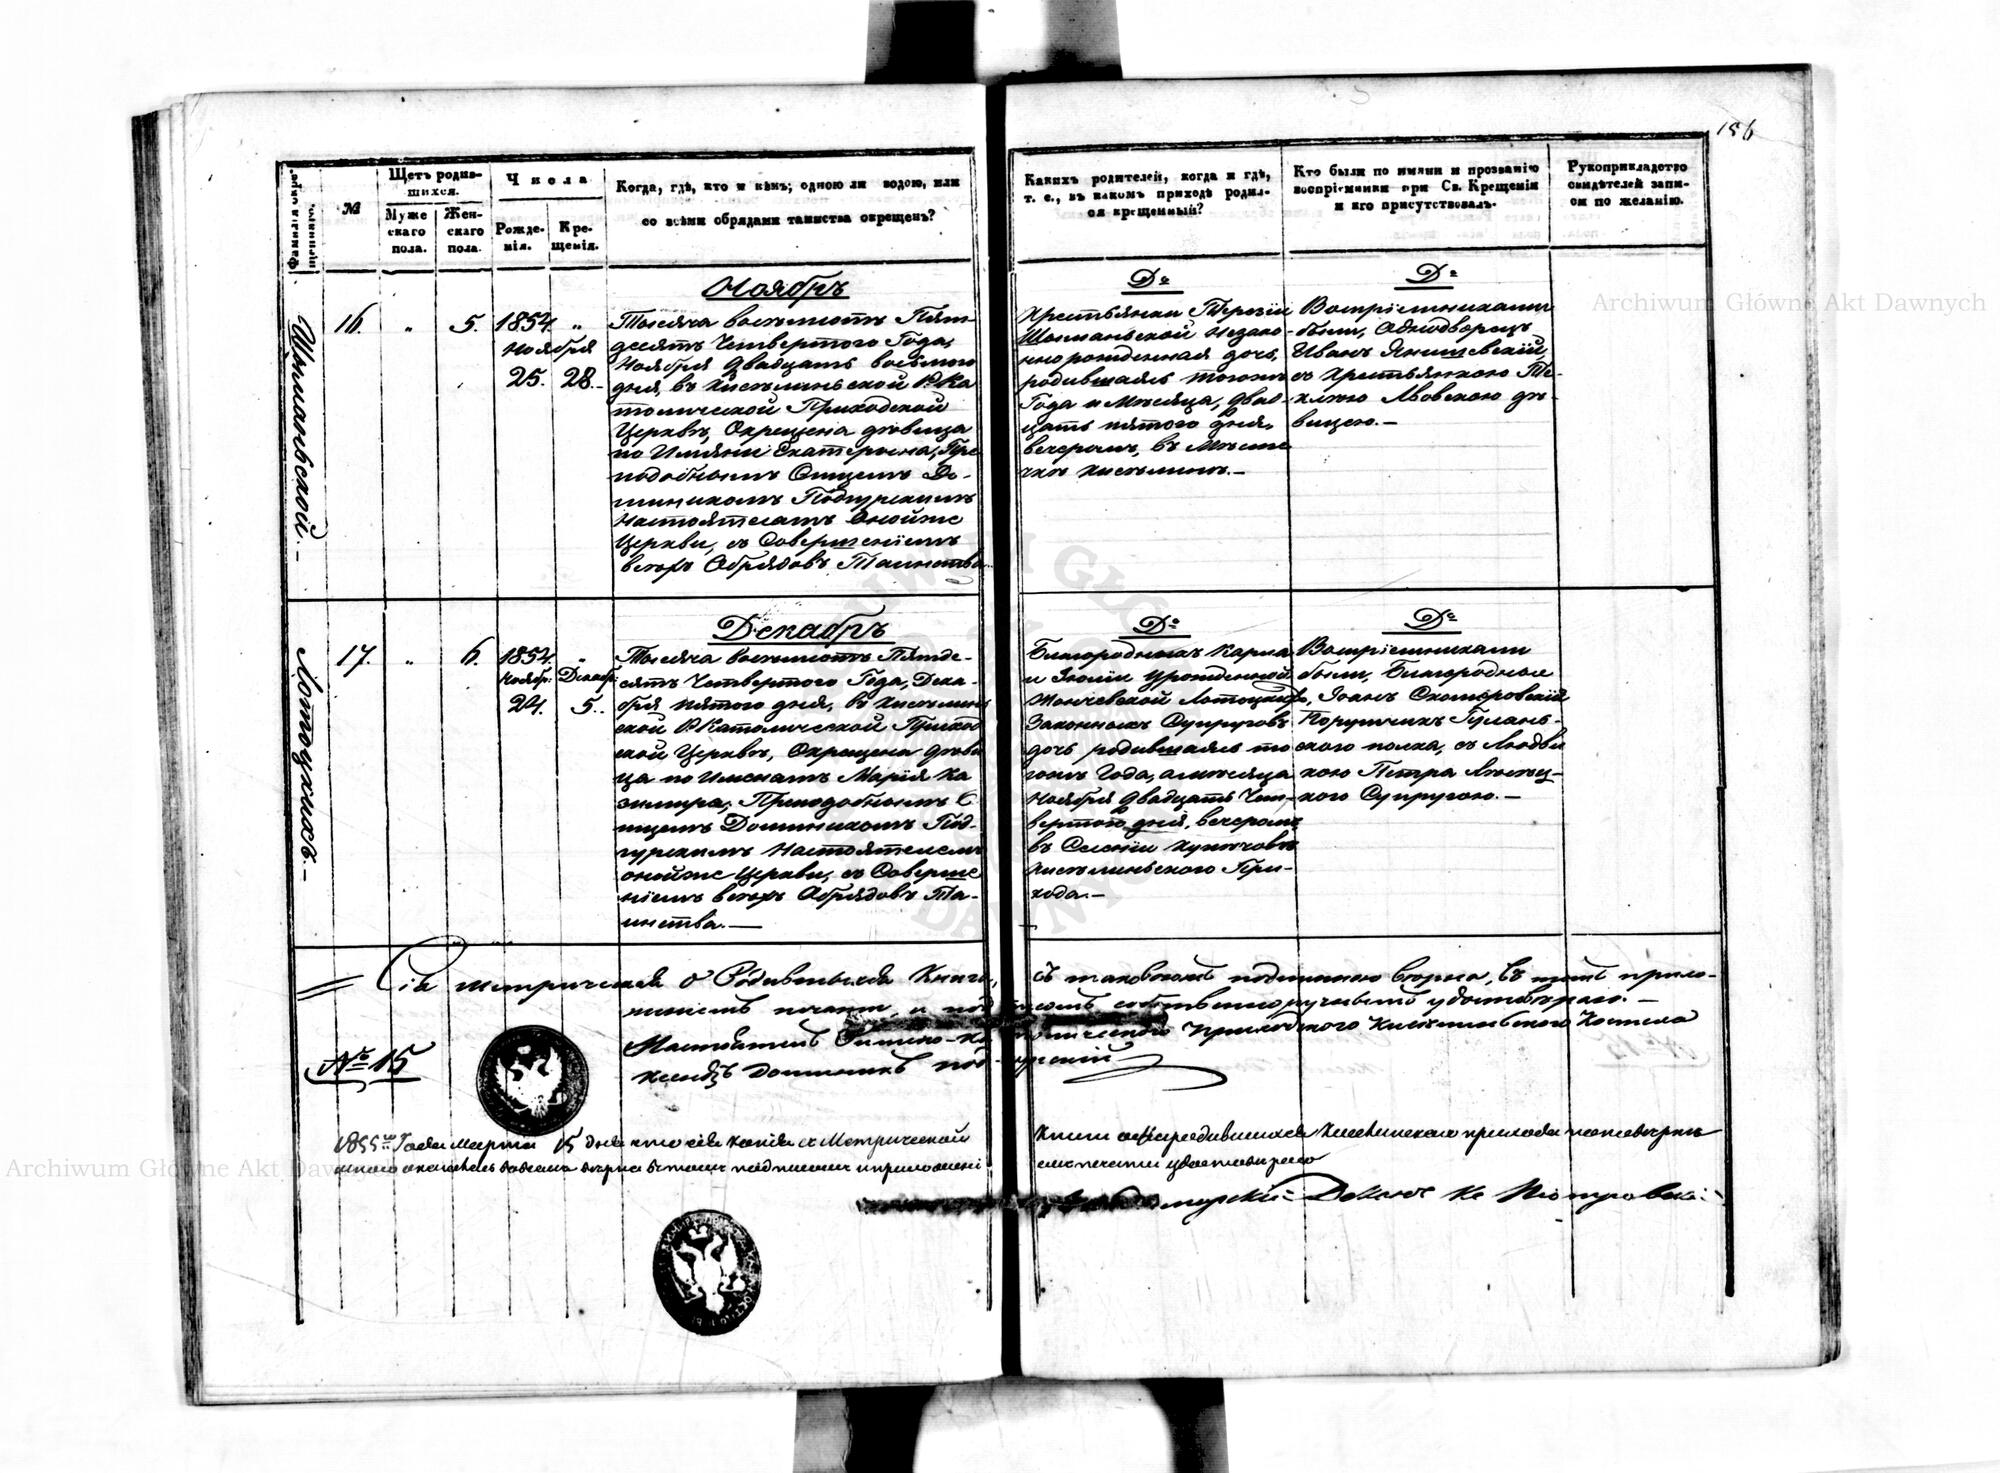 186
Фамилія окре-
щеннаго.
№
Щетъ родив-
шихся.
Муже
скаго
пола.
Жен-
скаго
пола.
Числа
Рожде-
нія.
Кре-
щенія.
Когда, гдѣ, кто и кѣмъ; одною ли водою, или
со всѣми обрядами таинства окрещенъ?
Какихъ родителей, когда и гдѣ,
т. е., въ какомъ приходѣ родил-
ся крещенный?
Кто были по имени и прозванію
воспріемники при Св. Крещеніи
и кто присутствовалъ.
Рукоприкладство
свидѣтелей запи-
си по желанію.
16.
„
5.
1854 „
Ноября
25. 28.
Ноябрь
Тысяча восемьсотъ Пять-
десятъ Четвертого Года,
Ноября двадцать восьмого
дня, въ Кисѣлиньской Р. Ка
толической Приходской
Церквѣ, Окрещена дѣвица
по Имяни Екатерина, Пре
подобнымъ Отцемъ До-
миникомъ Подгурскимъ
Настоятелемъ Онойже
Церкви, съ Совершеніемъ
всѣхъ Обрядовъ Таинства
Dо
Крестьянки Терезіи
Шыманьской незако-
ннорожденная дочь,
родившаясь тогожъ
Года и Мѣсяца, два-
цать пятого дня,
вечеромъ, въ Мѣсте
чкѣ Кисѣлинѣ.—
Dо
Воспріемниками
были, Однодворецъ
Иванъ Янишевскій,
съ Крестьянкою Те-
клею Львовскою дѣ-
вицею.—
Шыманьской.—
17.
„
6.
1854 „
Ноябр: Декабр:
24. 5.
Декабрь
Тысяча восемьсотъ Пятьде-
сятъ Четвертого Года, Дека-
бря пятого дня, въ Кисѣлинь
ской Р. Католической Приход
ской Церквѣ, Окрещена дѣви
ца по Именамъ Марія Ка
зимира, Преподобнымъ О
тцемъ Доминикомъ Под-
гурскимъ Настоятелемъ
онойже Церкви, съ Соверше
ніемъ всѣхъ Обрядовъ Та-
инства.—
Dо
Благородныхъ Карла
и Юліи урожденной
Жончевской Лотоцкихъ,
Законныхъ Супруговъ
дочь родившаясь то
гожъ Года, а мѣсяца
Ноября двадцать Чет-
вертого дня, вечеромъ
въ Селеніи Купичовѣ
Кисѣлиньского При-
хода.—
Dо
Воспріемниками
были, Благородные
Іоанъ Скоморовскій
Порутчикъ Гулань-
ского полка, съ Людви
кою Петра Лотоц-
кого Супругою.—
Лотоцкихъ.—
Сія метрическая о Родившихся Книга, съ таковоюжъ подлинною вѣрна, въ томъ прило-
женіемъ печати, и подписомъ собственноручнымъ удостовѣряю.—
Настоятель Римско-Католического Приходского Кисѣлиньского Костела
Ксендзъ Доминикъ Подгурскій
№ 15
1855го Года Марта 15 дня что сія копія съ Метрической Книги о Народившихся Кисѣлинскаго прихода